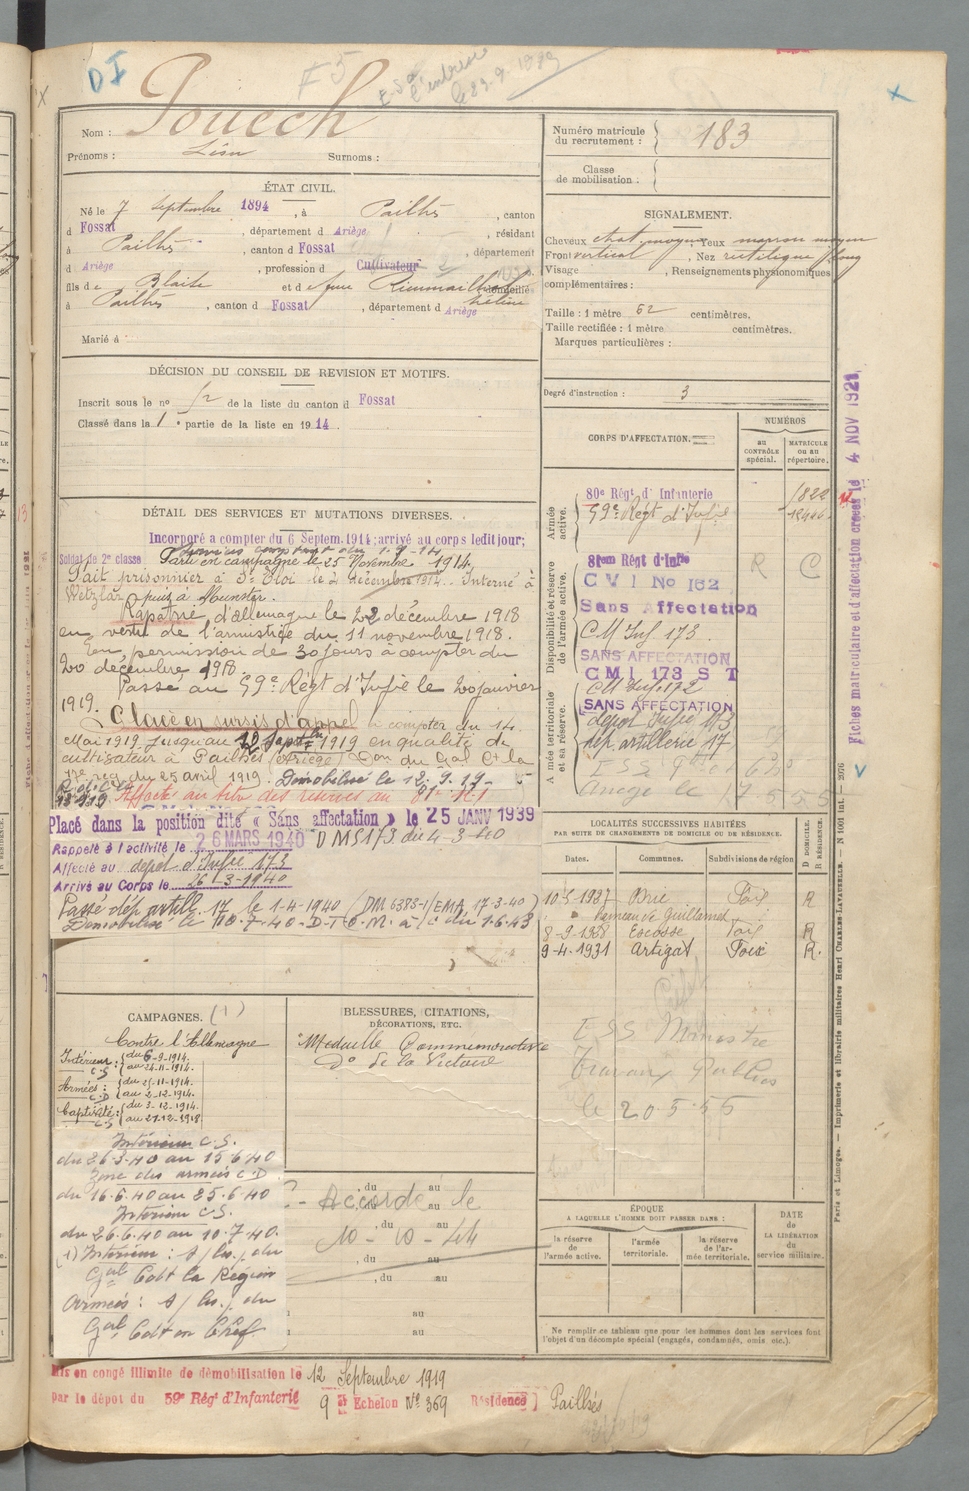 DI
F5
le 23.9.1939
Nom : Pouech
Prénoms : Léon Surnoms :
ÉTAT CIVIL.
Né le 7 septembre 1894, à Pailhès, canton
d Fossat, département d Ariège, résidant
à Pailhès, canton d Fossat, département
d Ariège, profession d Cultivateur
fils de Blaise et de feue Rieumailhol Hélène domiciliés
à Pailhès, canton d Fossat, département d Ariège
Marié à
DÉCISION DU CONSEIL DE REVISION ET MOTIFS.
Inscrit sous le no 12 de la liste du canton d Fossat
Classé dans la 1e partie de la liste en 1914.
DÉTAIL DES SERVICES ET MUTATIONS DIVERSES.
Incorporé a compter du 6 Septem. 1914; arrivé au corps ledit jour;
Soldat de 2e classe Services comptant du 1-9-14
Parti en campagne le 25 Novembre 1914.
Fait prisonnier à St Eloi le 2 décembre 1914. Interné à
Wetzlar puis à Munster.
Rapatrié d'allemagne le 22 décembre 1918
en vertu de l'armistice du 11 novembre 1918.
En permission de 30 jours à compter du
20 décembre 1918
Passé au 59e Régt d'Infie le 20 janvier
1919.
Placé en sursis d'appel à compter du 14
Mai 1919 jusqu'au 12 Septbre 1919 en qualité de
cultivateur à Pailhès (Ariège) Con du Gal Ct la
17e rég. du 25 avril 1919. Démobilisé le 12.9.19-
Affecté au titre des réserves au 81e RI
Placé dans la position dite « Sans affectation » le 25 JANV 1939
Rappelé à l'activité le 26 MARS 1940 DMS173 du 4-3-40
Affecté au dépot d'Infie 173
Arrivé au Corps le 26-3-1940
Passé dép. artill. 17 le 1-4-1940 (DM 6388-1/EMA 17-3-40)
Démobilisé le 10-7-40-D-T-O-M. à/c du 1.6.43
CAMPAGNES. (1)
Contre l'Allemagne
Intérieur : C.S { du 6-9-1914. au 24-11-1914.
Armées : C.D { du 25-11-1914. au 2-12-1914.
Captivité : C.S { du 3-12-1914. au 21-12-1918
Intérieur C.S.
du 26-3-40 au 15-6-40
Zone des armées C.D
du 16.6.40 au 25.6.40
Intérieur C.S.
du 26.6.40 au 10.7.40.
(1) Intérieur : du
Gal Cdt la Région
Armées : du
Gal Cdt en Chef
BLESSURES, CITATIONS,
DÉCORATIONS, ETC.
Médaille Commémorative
do de la Victoire
du au
Accordé le
, du au
10-10-44
, du au
, du au
au
au
Mis en congé illimité de démobilisation le 12 Septembre 1919
par le dépot du 59e Régt d'Infanterie 9e Echelon No 369 Résidence) Pailhès
Numéro matricule
du recrutement : } 183
Classe
de mobilisation : {
SIGNALEMENT.
Cheveux chat. moyen Yeux marron moyen
Front vertical, Nez rectiligne long
Visage, Renseignements physionomiques
complémentaires :
Taille : 1 mètre 62 centimètres.
Taille rectifiée : 1 mètre centimètres.
Marques particulières :
Degré d'instruction : 3
CORPS D'AFFECTATION.
NUMÉROS
au CONTRÔLE spécial.
MATRICULE ou au répertoire.
Armée active.
80e Régt d'Infanterie 1822
59e Régt d'Infie
Disponibilité et réserve de l'armée active.
81em Regt d'Infie R C
C V I No 162
Sans Affectation
CM Inf. 173.
SANS AFFECTATION
C M I 173 S T
Armée territoriale et sa réserve.
CM Inf. 172
SANS AFFECTATION
dépot Infie 173
dép. artillerie 17
LOCALITÉS SUCCESSIVES HABITÉES
PAR SUITE DE CHANGEMENTS DE DOMICILE OU DE RÉSIDENCE.
D DOMICILE. R RÉSIDENCE.
Dates. Communes. Subdivisions de région
10-5-1927 Brie Foix R
8-9-1928 Escosse Foix R
9-4-1931 Artigat Foix R.
ESS Ministre
Travaux Publics
le 20.5.55
ÉPOQUE
A LAQUELLE L'HOMME DOIT PASSER DANS :
la réserve de l'armée active.
l'armée territoriale.
la réserve de l'armée territoriale.
DATE DE LA LIBÉRATION du service militaire.
Ne remplir ce tableau que pour les hommes dont les services font
l'objet d'un décompte spécial (engagés, condamnés, omis, etc.).
Fiches matriculaire et d'affectation créées le 4 NOV 1921
Paris et Limoges. — Imprimerie et librairie militaires Henri CHARLES-LAVAUZELLE. — N 1001 Int. — 2076